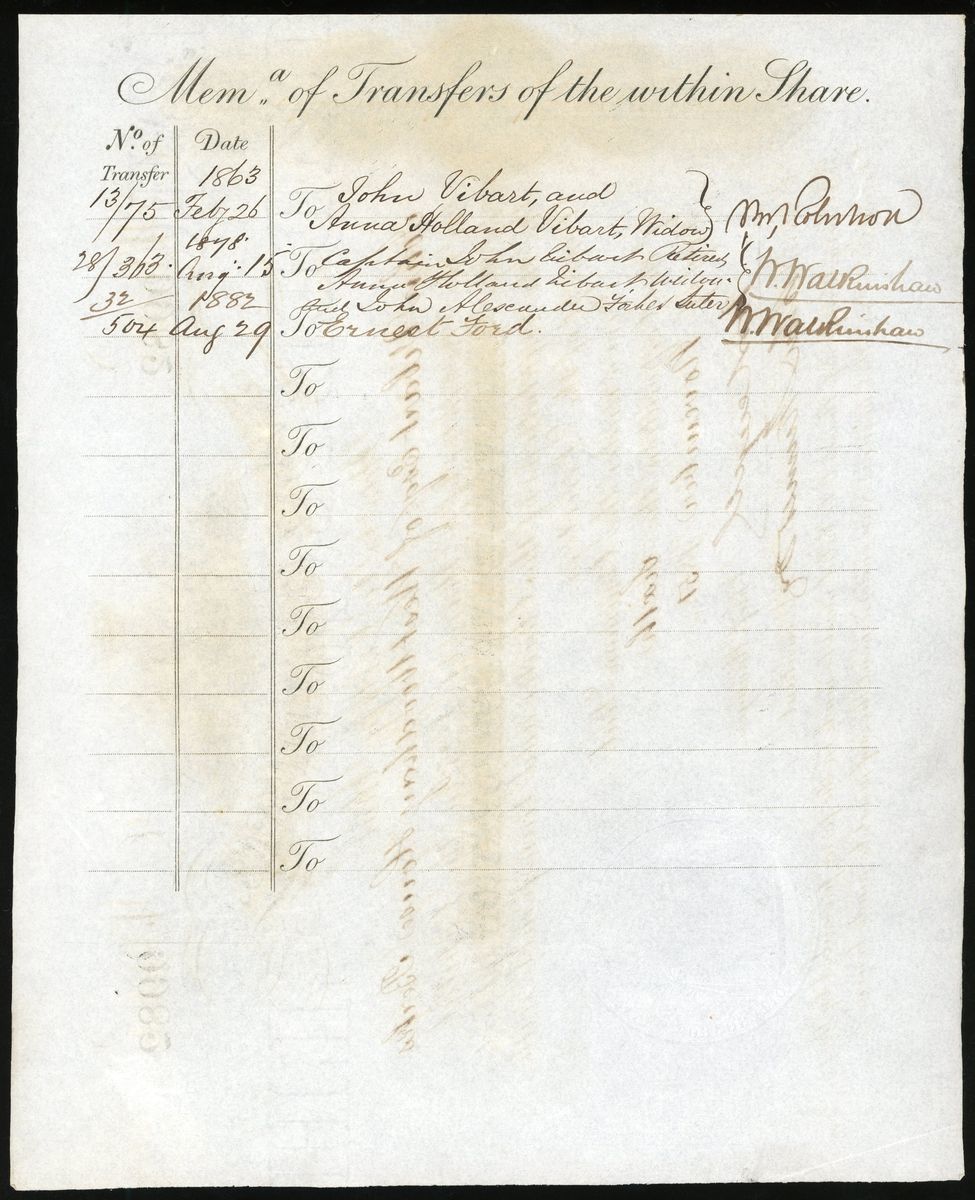 Mem.a of Transfers of the within Share.
No. of Transfer Date
1863
13/75 Feby 26 To John Vibart, and
Anna Holland Vibart, Widow
1878.
28/363. Augt. 15 To Captain John Vibart Retired
Anna Holland Vibart Widow
and John Alexander Forbes Luter
32/504 1882 Aug 29 To Ernest Ford. W. Walkinshaw
W. Walkinshaw
To
To
To
To
To
To
To
To
To